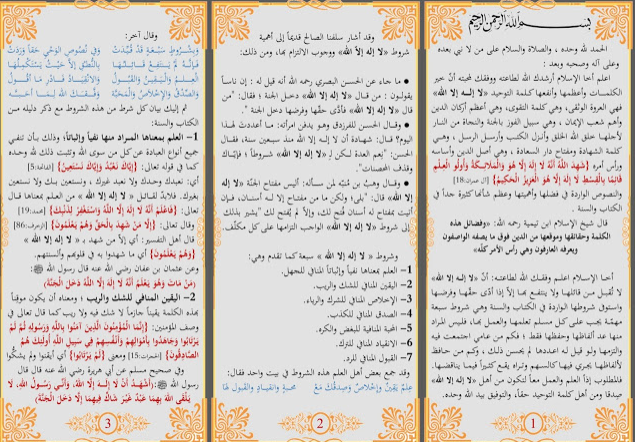 بسم الله الرحمن الرحيم
الحمد لله وحده ، والصلاة والسلام على من لا نبي بعده
وعلى آله وصحبه وبعد :
اعلم أخا الإسلام أرشدك الله لطاعته ووفقك لمحبته أنَّ خير
الكلمات وأعظمها وأنفعها كلمة التوحيد «لا إله إلا الله»
فهي العروة الوثقى، وهي كلمة التقوى، وهي أعظم أركان الدين
وأهم شعب الإيمان ، وهي سبيل الفوز بالجنة والنجاة من النار
لأجلها خلق الله الخلق وأنزل الكتب وأرسل الرسل ، وهـي
كلمة الشهادة ومفتاح دار السعادة ، وهي أصل الدين وأساسه
ورأس أمره {شَهِدَ اللَّهُ أَنَّهُ لَا إِلَٰهَ إِلَّا هُوَ وَالْمَلَائِكَةُ وَأُولُو الْعِلْمِ
قَائِمًا بِالْقِسْطِ لَا إِلَٰهَ إِلَّا هُوَ الْعَزِيزُ الْحَكِيمُ} [آل عمران:18]
والنصوص الواردة في فضلها وأهميتها وعظم شأنها كثيرة جداً في
الكتاب والسنة .
قال شيخ الإسلام ابن تيمية رحمه الله: «وفضائل هذه
الكلمة وحقائقها وموقعها من الدين فوق ما يصفه الواصفون
ويعرفه العارفون وهي رأس الأمر كلّه»
أخا الإسلام اعلم وفقك الله لطاعته: أنَّ «لا إله إلا الله»
لا تُقبل من قائلها ولا ينتفع بها إلاَّ إذا أدّى حقّها وفرضها
واستوفى شروطها الواردة في الكتاب والسنة وهي شروط سبعة
مهمّة يجب على كل مسلم تعلمها والعمل بها، فليس المراد
منها عد ألفاظها وحفظها فقط ؛ فكم من عامي اجتمعت فيه
والتزمها ولو قيل له اعددها لم يحسن ذلك ، وكم من حافظ
لألفاظها يجري فيها كالسهم وتراه يقع كثيراً فيما يناقضها.
فالمطلوب إذاً العلم والعمل معاً لتكون من أهل «لا إله إلا الله»
صدقا ومن أهل كلمة التوحيد حقاً، والتوفيق بيد الله وحده.
1
وقد أشار سلفنا الصالح قديماً إلى أهمية
شروط «لا إله إلاّ الله» ووجوب الالتزام بها، ومن ذلك:
● ما جاء عن الحسن البصري رحمه الله أنه قيل له : إن ناساً
يقولـون : من قـال "لا إله إلا الله" دخـل الجنة ؛ فقال: "من
قال "لا إله إلا الله" فأدّى حقّها وفرضها دخل الجنة ".
● وقـال الحسن للفرزدق وهـو يدفن امرأته: ما أعددتَ لهـذا
اليوم؟ قال: شهادة أن لا إلـه إلا الله منذ سبعين سنة، فقـال
الحسن: "نِعم العدة لكـن لـ «لا إله إلا الله» شـروطاً ؛ فإيّـاك
وقذف المحصنات".
● وقـال وهـبُ بن مُنبّه لمن سـأله: أليس مفتاح الجنَّة «لا إله
إلا الله» قال: "بلى؛ ولكن ما من مفتاح إلا لـه أسنـان، فـإن
أتيت بمفتاح له أسنان فُتح لـك، وإلاَّ لم يُفتح لك" يشير بذلك
إلى شروط «لا إله إلا الله» الواجب التزامها على كل مكلّف.
وشروط «لا إله إلا الله» سبعة كما تقدم وهي:
1- العلم بمعناها نفياً وإثباتاً المنافي للجهل.
2- اليقين المنافي للشك والريب.
3- الإخلاص المنافي للشرك والرياء.
4- الصدق المنافي للكذب.
5- المحبة المنافية للبغض والكره.
6- الانقياد المنافي للترك.
7- القبول المنافي للرد.
وقد جمع بعض أهل العلم هذه الشروط في بيت واحد فقال:
عِلمٌ يَقِينٌ وإخْلاَصٌ وصِدقُكَ مَعْ محبـةٍ وانقيـادٍ والقبول لها
2
وقال آخر:
وَبِشُـرُوطٍ سَبْعَـةٍ قَدْ قُيِّـدَتْ وَفِي نُصُوصِ الوَحْيِ حَقّاً وَرَدَتْ
فَإِنَّـهُ لَمْ يَنتَفِـعْ قَـائِـلُهَـا بِالنُّطْقِ إِلاَّ حَيْثُ يَسْتَكْمِلُهَا
الْعِلْـمُ وَالْيَقِيـنُ وَالقَبُـولُ وَالانْقِيَـادُ فَـادْرِ مَـا أَقُـولُ
وَالصِّـدْقُ وَالإِخْلاَصُ وَالْمَحَبَّة وَفَّقَـكَ الله لِمَـا أَحَبَّـه
ثم إليك بيان كل شرط من هذه الشروط مع ذكر دليله من
الكتاب والسنة:
1- العلم بمعناها المراد منها نفياً وإثباتاً؛ وذلك بـأن تنفي
جميع أنواع العبادة عن كل من سوى الله وتثبت ذلك لله وحده
كما في قوله تعالى: {إِيَّاكَ نَعْبُدُ وَإِيَّاكَ نَسْتَعِينُ} [الفاتحة:5]
أي: نعبدك وحدك ولا نعبد غيرك، ونستعين بـك ولا نستعين
بغيرك. فلابدّ لقائل «لا إله إلا الله» من العلم بمعناها قـال
تعالى: {فَاعْلَمْ أَنَّهُ لَا إِلَٰهَ إِلَّا اللَّهُ وَاسْتَغْفِرْ لِذَنْبِكَ} [محمد:19]
وقال تعالى: {إِلَّا مَن شَهِدَ بِالْحَقِّ وَهُمْ يَعْلَمُونَ} [الزخرف:86]
قال أهل التفسير: أي إلاَّ من شهد بـ «لا إله إلا الله»
{وَهُمْ يَعْلَمُونَ} أي ما شهدوا به في قلوبهم وألسنتهم.
وعن عثمان بن عفان رضي الله عنه قال رسول الله ﷺ:
(مَنْ مَاتَ وَهُوَ يَعْلَمُ أَنَّهُ لَا إِلَهَ إِلَّا اللَّهُ دَخَلَ الْجَنَّةَ)
2- اليقين المنافي للشك والريب ؛ ومعناه أن يكون موقناً
بهذه الكلمة يقيناً جازماً لا شك فيه ولا ريب كما قال تعالى في
وصف المؤمنين: {إِنَّمَا الْمُؤْمِنُونَ الَّذِينَ آمَنُوا بِاللَّهِ وَرَسُولِهِ ثُمَّ لَمْ
يَرْتَابُوا وَجَاهَدُوا بِأَمْوَالِهِمْ وَأَنفُسِهِمْ فِي سَبِيلِ اللَّهِ أُولَٰئِكَ هُمُ
الصَّادِقُونَ} [الحجرات:15] ومعنى {لَمْ يَرْتَابُوا} أي أيقنوا ولم يشكُّوا
وفي صحيح مسلم عن أبي هريرة رضي الله عنه قال قال
رسول الله ﷺ: (أَشْهَدُ أَنْ لَا إِلَهَ إِلَّا اللَّهُ، وَأَنِّي رَسُولُ اللَّهِ، لَا
يَلْقَى اللَّهَ بِهِمَا عَبْدٌ غَيْرَ شَاكٍّ فِيهِمَا إِلَّا دَخَلَ الْجَنَّةَ)
3